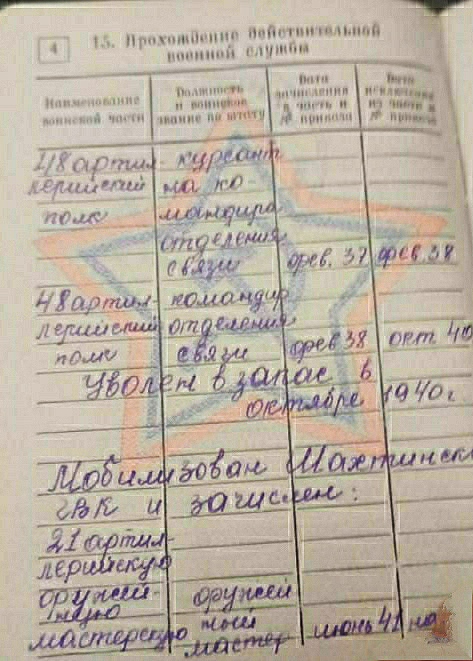 4
15. Прохождение действительной
военной службы
Наименование воинской части
Должность и воинское звание по штату
Дата зачисления в часть и № приказа
Дата исключения из части и № приказа
48 артил- курсант
лерийский на ко-
полк мандира
отделения
связи фев. 37 фев. 38
48 артил- командир
лерийский отделения
полк связи фев 38 окт 40
Уволен в запас в
октябре 1940 г
Мобилизован Шахтинск
ГВК и зачислен:
21 артил-
лерийскую
оружей- оружей
ную ный
мастерскую мастер июнь 41 на